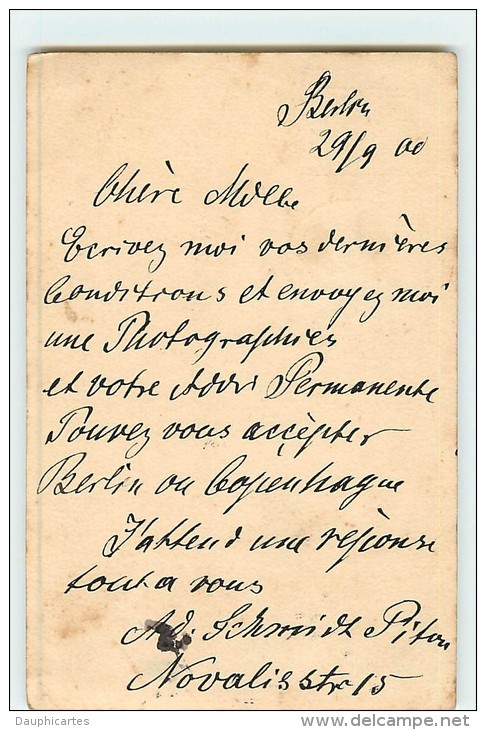 Berlin
29/9 00
Chère Mdlle
Ecrivez moi vos dernières
Conditions et envoyez moi
une Photographies
et votre Addr Permanente
Pouvez vous accèpter
Berlin ou Copenhague
J'attend une réponse
tout a vous
Ad. Schmidt Piton
Novalis str 15
Dauphicartes
www.delcampe.net